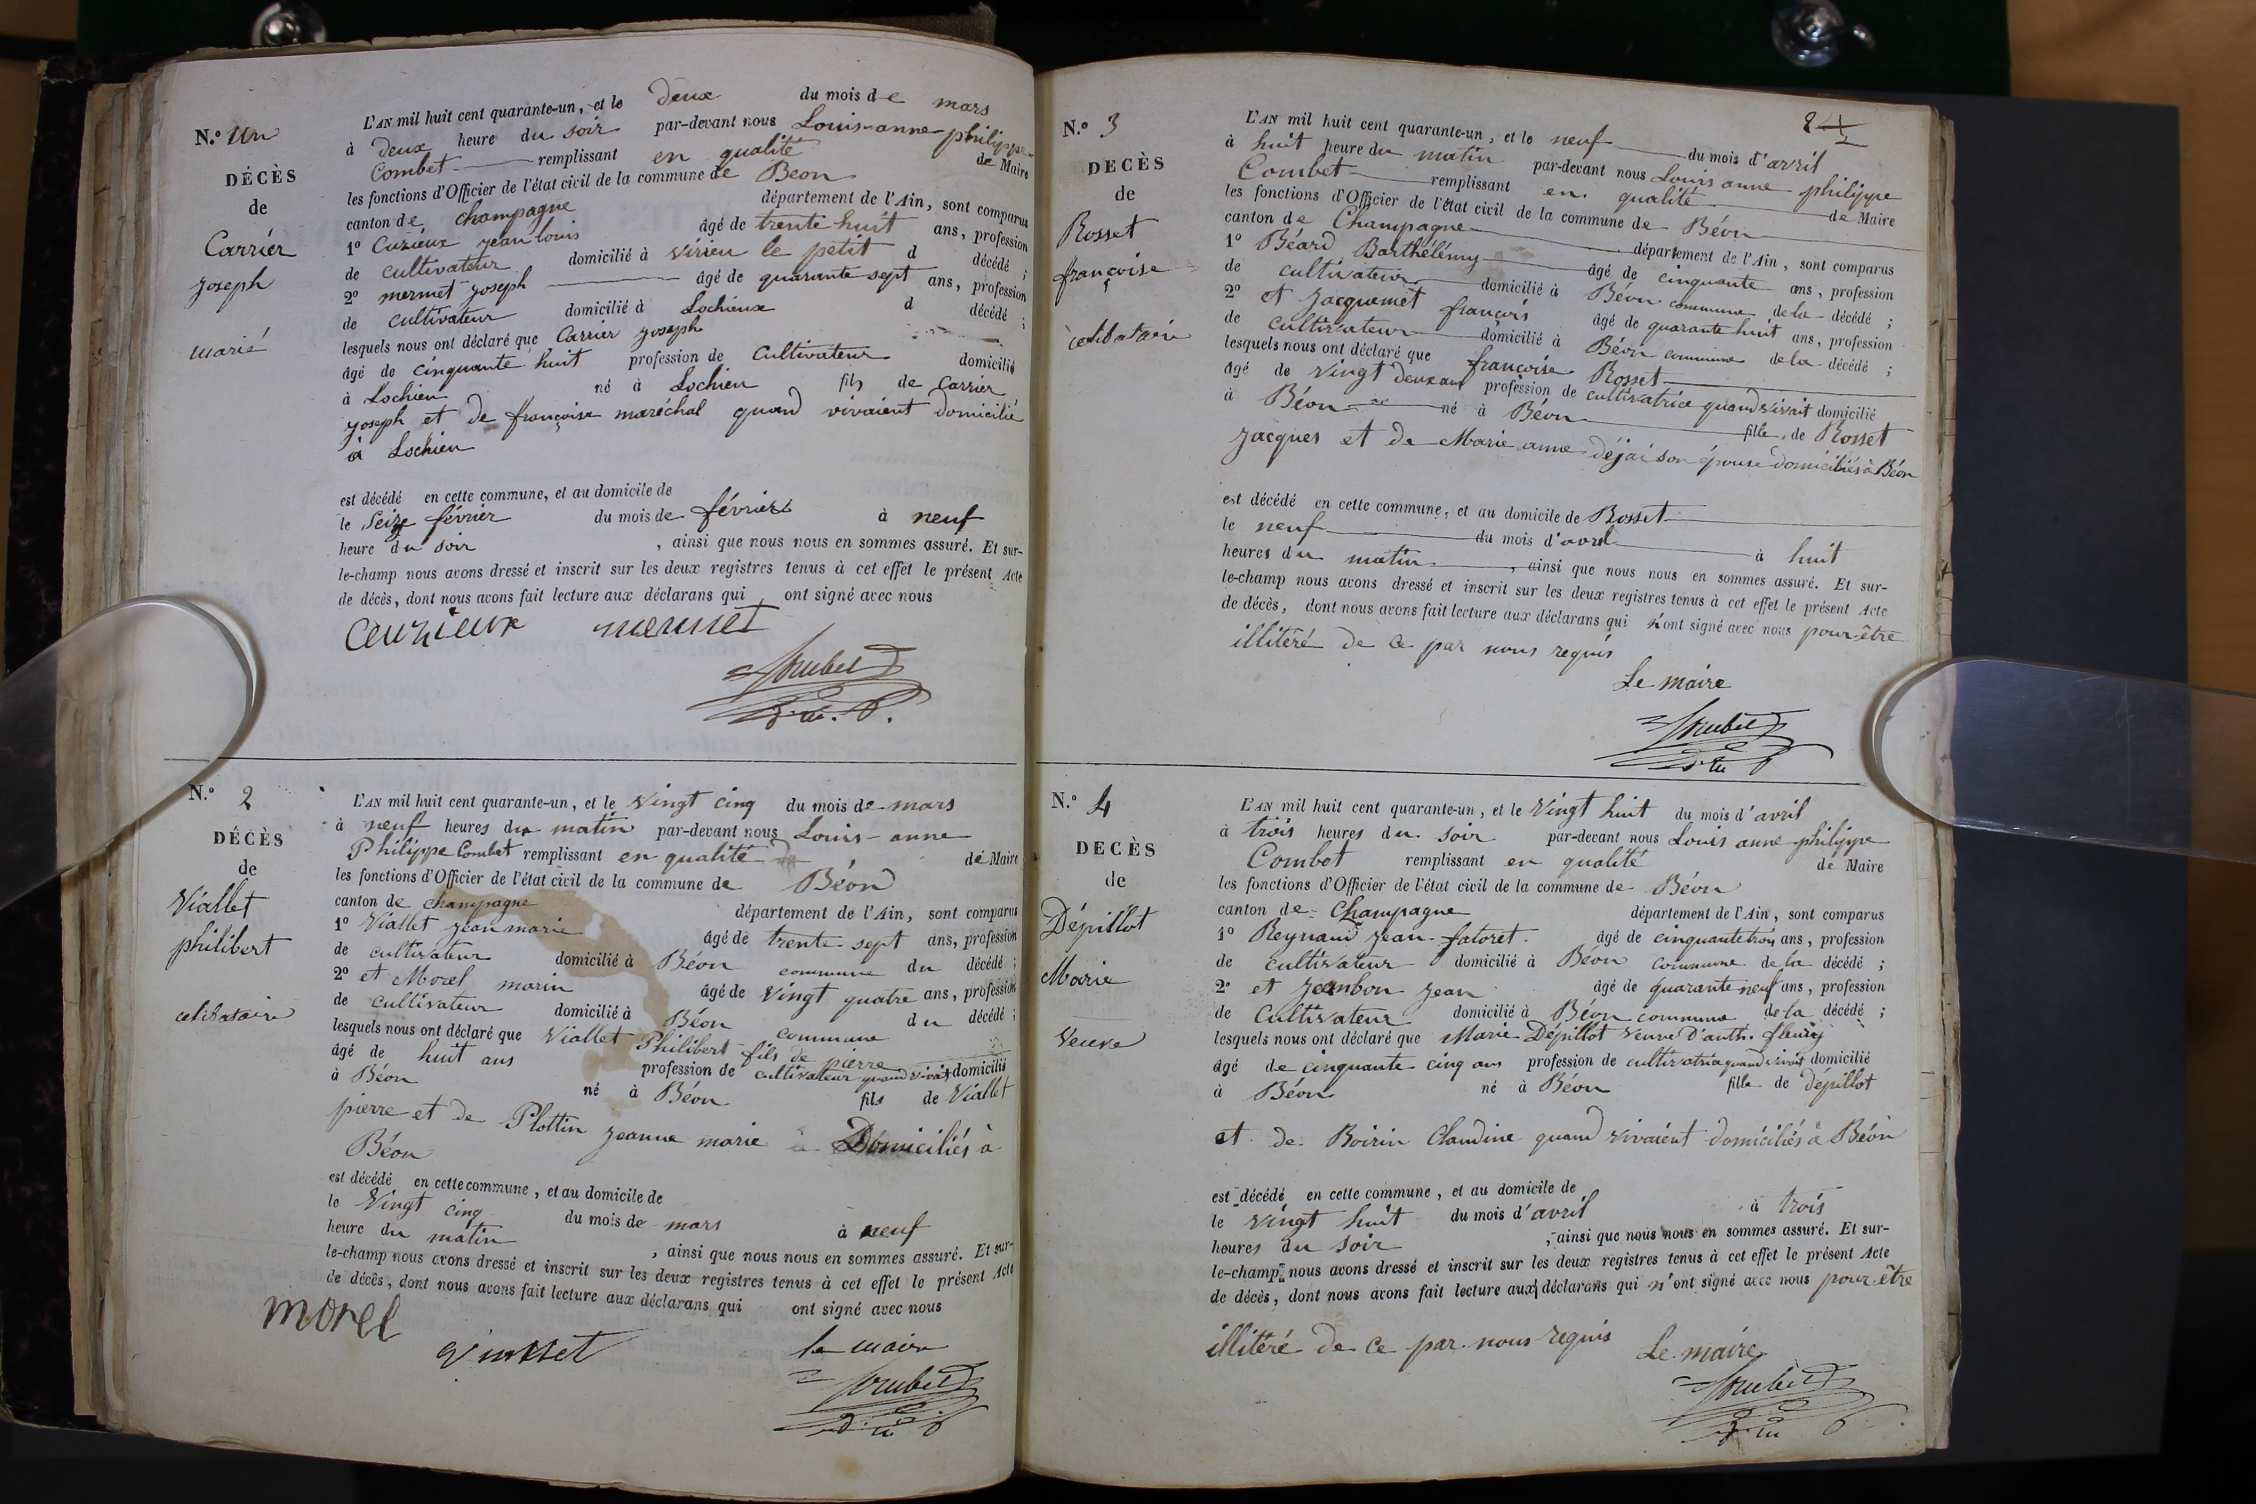 N.º Un
DÉCÈS
de
Carrier
Joseph
marié
L'AN mil huit cent quarante-un, et le deux du mois de mars
à deux heure du soir par-devant nous Louis-anne-philippe
Combet remplissant en qualité de Maire
les fonctions d'Officier de l'état civil de la commune de Beon
canton de champagne département de l'Ain, sont comparus
1º Curieux jean louis âgé de trente huit ans, profession
de cultivateur domicilié à virieu le petit d décédé ;
2º mermet joseph âgé de quarante sept ans, profession
de cultivateur domicilié à Lochieux d décédé ;
lesquels nous ont déclaré que Carrier joseph
âgé de cinquante huit profession de cultivateur domicilié
à Lochieu né à Lochieu fils de Carrier
joseph et de françoise maréchal quand vivaient domicilié
à Lochieu
est décédé en cette commune, et au domicile de
le seize février du mois de février à neuf
heure du soir , ainsi que nous nous en sommes assuré. Et sur-
le-champ nous avons dressé et inscrit sur les deux registres tenus à cet effet le présent Acte
de décès, dont nous avons fait lecture aux déclarans qui ont signé avec nous
mermet
N.º 2
DÉCÈS
de
Viallet
philibert
celibataire
L'AN mil huit cent quarante-un, et le vingt cinq du mois de mars
à neuf heures du matin par-devant nous Louis-anne
Philippe Combet remplissant en qualité de Maire
les fonctions d'Officier de l'état civil de la commune de Béon
canton de champagne département de l'Ain, sont comparus
1º Viallet jean marie âgé de trente sept ans, profession
de cultivateur domicilié à Béon commune du décédé ;
2º et Morel marin âgé de vingt quatre ans, profession
de cultivateur domicilié à Béon commune du décédé ;
lesquels nous ont déclaré que Viallet Philibert fils de pierre
âgé de huit ans profession de cultivateur quand vivait domicilié
à Béon né à Béon fils de Viallet
pierre et de Plottin jeanne marie Domiciliés à
Béon
est décédé en cette commune, et au domicile de
le vingt cinq du mois de mars à neuf
heure du matin , ainsi que nous nous en sommes assuré. Et sur-
le-champ nous avons dressé et inscrit sur les deux registres tenus à cet effet le présent Acte
de décès, dont nous avons fait lecture aux déclarans qui ont signé avec nous
morel
le maire
N.º 3
DECÈS
de
Rosset
françoise
celibataire
L'AN mil huit cent quarante-un, et le neuf du mois d'avril
à huit heure du matin par-devant nous Louis anne philippe
Combet remplissant en qualité de Maire
les fonctions d'Officier de l'état civil de la commune de Béon
canton de Champagne département de l'Ain, sont comparus
1º Béard Barthélémy âgé de cinquante ans, profession
de cultivateur domicilié à Béon commune de la décédé ;
2º et Jacquemet françois âgé de quarante huit ans, profession
de cultivateur domicilié à Béon commune de la décédé ;
lesquels nous ont déclaré que françoise Rosset
âgé de vingt deux ans profession de cultivatrice quand vivait domicilié
à Béon né à Béon fille de Rosset
Jacques et de Marie anne déjai son épouse domiciliés à Béon
est décédé en cette commune, et au domicile de Rosset
le neuf du mois d'avril à huit
heures du matin , ainsi que nous nous en sommes assuré. Et sur-
le-champ nous avons dressé et inscrit sur les deux registres tenus à cet effet le présent Acte
de décès, dont nous avons fait lecture aux déclarans qui n'ont signé avec nous pour être
illitéré de ce par nous requis
Le maire
N.º 4
DECÈS
de
Dépillot
Marie
Veuve
L'AN mil huit cent quarante-un, et le vingt huit du mois d'avril
à trois heures du soir par-devant nous Louis anne philippe
Combet remplissant en qualité de Maire
les fonctions d'Officier de l'état civil de la commune de Béon
canton de Champagne département de l'Ain, sont comparus
1º Reynaud jean fatoret âgé de cinquante trois ans, profession
de cultivateur domicilié à Béon commune de la décédé ;
2º et Jambon jean âgé de quarante neuf ans, profession
de cultivateur domicilié à Béon commune de la décédé ;
lesquels nous ont déclaré que Marie Dépillot veuve D'anth. fleury
âgé de cinquante cinq ans profession de cultivatrice quand vivait domicilié
à Béon né à Béon fille de dépillot
et de Boirin Claudine quand vivaient domiciliés à Béon
est décédé en cette commune, et au domicile de
le vingt huit du mois d'avril à trois
heures du soir , ainsi que nous nous en sommes assuré. Et sur-
le-champ nous avons dressé et inscrit sur les deux registres tenus à cet effet le présent Acte
de décès, dont nous avons fait lecture aux déclarans qui n'ont signé avec nous pour être
illitéré de ce par nous requis
Le maire